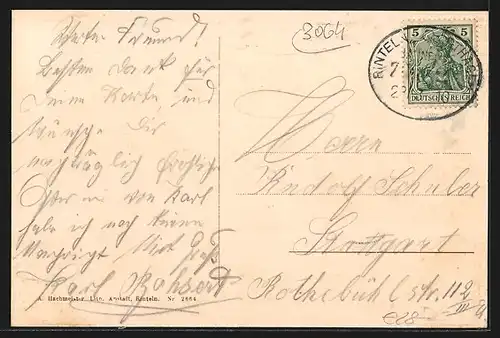 Werter Freund!
Besten Dank für
Deine Karte, und
wünsche Dir
nachträglich fröhliche
von Karl
habe ich noch keine
Nachrigt Mit Gruß
Karl
A. Hachmeister, Lith. Anstalt, Rinteln. Nr 2664
3064
RINTELN
5 5
DEUTSCHES REICH
Herrn
Rudolf Schuler
Stuttgart
Rothebühlstr. 112
III